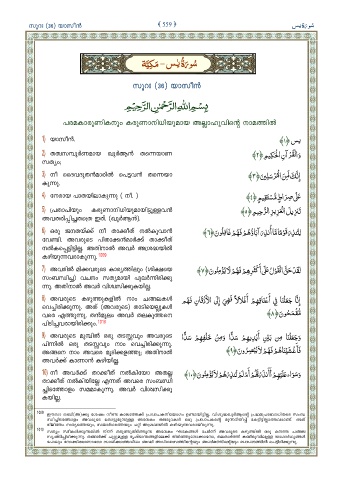 സൂറഃ (36) യാസീൻ
﴾ 559 ﴿
سُورَةُ يس
سُورَةُ يس - مَكِّيَّة
സൂറഃ (36) യാസീൻ
بِسْمِ اللَّهِ الرَّحْمَٰنِ الرَّحِيمِ
പരമകാരുണികനും കരുണാനിധിയുമായ അല്ലാഹുവിന്റെ നാമത്തിൽ
1) യാസീൻ.
يس ﴿١﴾
2) തത്വസമ്പൂർണമായ ഖുർആൻ തന്നെയാണ
സത്യം;
وَالْقُرْآنِ الْحَكِيمِ ﴿٢﴾
3) നീ ദൈവദൂതൻമാരിൽ പെട്ടവൻ തന്നെയാ
കുന്നു.
إِنَّكَ لَمِنَ الْمُرْسَلِينَ ﴿٣﴾
4) നേരായ പാതയിലാകുന്നു ( നീ. )
عَلَىٰ صِرَاطٍ مُّسْتَقِيمٍ ﴿٤﴾
5) പ്രതാപിയും കരുണാനിധിയുമായിട്ടുള്ളവൻ
അവതരിപ്പിച്ചതത്രെ ഇത്. (ഖുർആൻ).
تَنزِيلَ الْعَزِيزِ الرَّحِيمِ ﴿٥﴾
6) ഒരു ജനതയ്ക്ക് നീ താക്കീത് നൽകുവാൻ
വേണ്ടി. അവരുടെ പിതാക്കൻമാർക്ക് താക്കീത്
നൽകപ്പെട്ടിട്ടില്ല. അതിനാൽ അവർ അശ്രദ്ധയിൽ
കഴിയുന്നവരാകുന്നു.
لِتُنذِرَ قَوْمًا مَّا أُنذِرَ آبَاؤُهُمْ فَهُمْ غَافِلُونَ ﴿٦﴾
7) അവരിൽ മിക്കവരുടെ കാര്യത്തിലും (ശിക്ഷയെ
സംബന്ധിച്ച) വചനം സത്യമായി പുലർന്നിരിക്കു
ന്നു. അതിനാൽ അവർ വിശ്വസിക്കുകയില്ല.
لَقَدْ حَقَّ الْقَوْلُ عَلَىٰ أَكْثَرِهِمْ فَهُمْ لَا يُؤْمِنُونَ ﴿٧﴾
8) അവരുടെ കഴുത്തുകളിൽ നാം ചങ്ങലകൾ
വെച്ചിരിക്കുന്നു. അത് (അവരുടെ) താടിയെല്ലുകൾ
വരെ എത്തുന്നു. തന്മൂലം അവർ തലകുത്തനെ
പിടിച്ചവരായിരിക്കും.
إِنَّا جَعَلْنَا فِي أَعْنَاقِهِمْ أَغْلَالًا فَهِيَ إِلَى الْأَذْقَانِ فَهُم
مُّقْمَحُونَ ﴿٨﴾
9) അവരുടെ മുമ്പിൽ ഒരു തടസ്സവും അവരുടെ
പിന്നിൽ ഒരു തടസ്സവും നാം വെച്ചിരിക്കുന്നു.
അങ്ങനെ നാം അവരെ മൂടിക്കളഞ്ഞു; അതിനാൽ
അവർക്ക് കാണാൻ കഴിയില്ല.
وَجَعَلْنَا مِن بَيْنِ أَيْدِيهِمْ سَدًّا وَمِنْ خَلْفِهِمْ سَدًّا
فَأَغْشَيْنَاهُمْ فَهُمْ لَا يُبْصِرُونَ ﴿٩﴾
10) നീ അവർക്ക് താക്കീത് നൽകിയോ അതല്ല
താക്കീത് നൽകിയില്ലേ എന്നത് അവരെ സംബന്ധി
ച്ചിടത്തോളം സമമാകുന്നു. അവർ വിശ്വസിക്കു
കയില്ല.
وَسَوَاءٌ عَلَيْهِمْ أَأَنذَرْتَهُمْ أَمْ لَمْ تُنذِرْهُمْ لَا يُؤْمِنُونَ ﴿١٠﴾